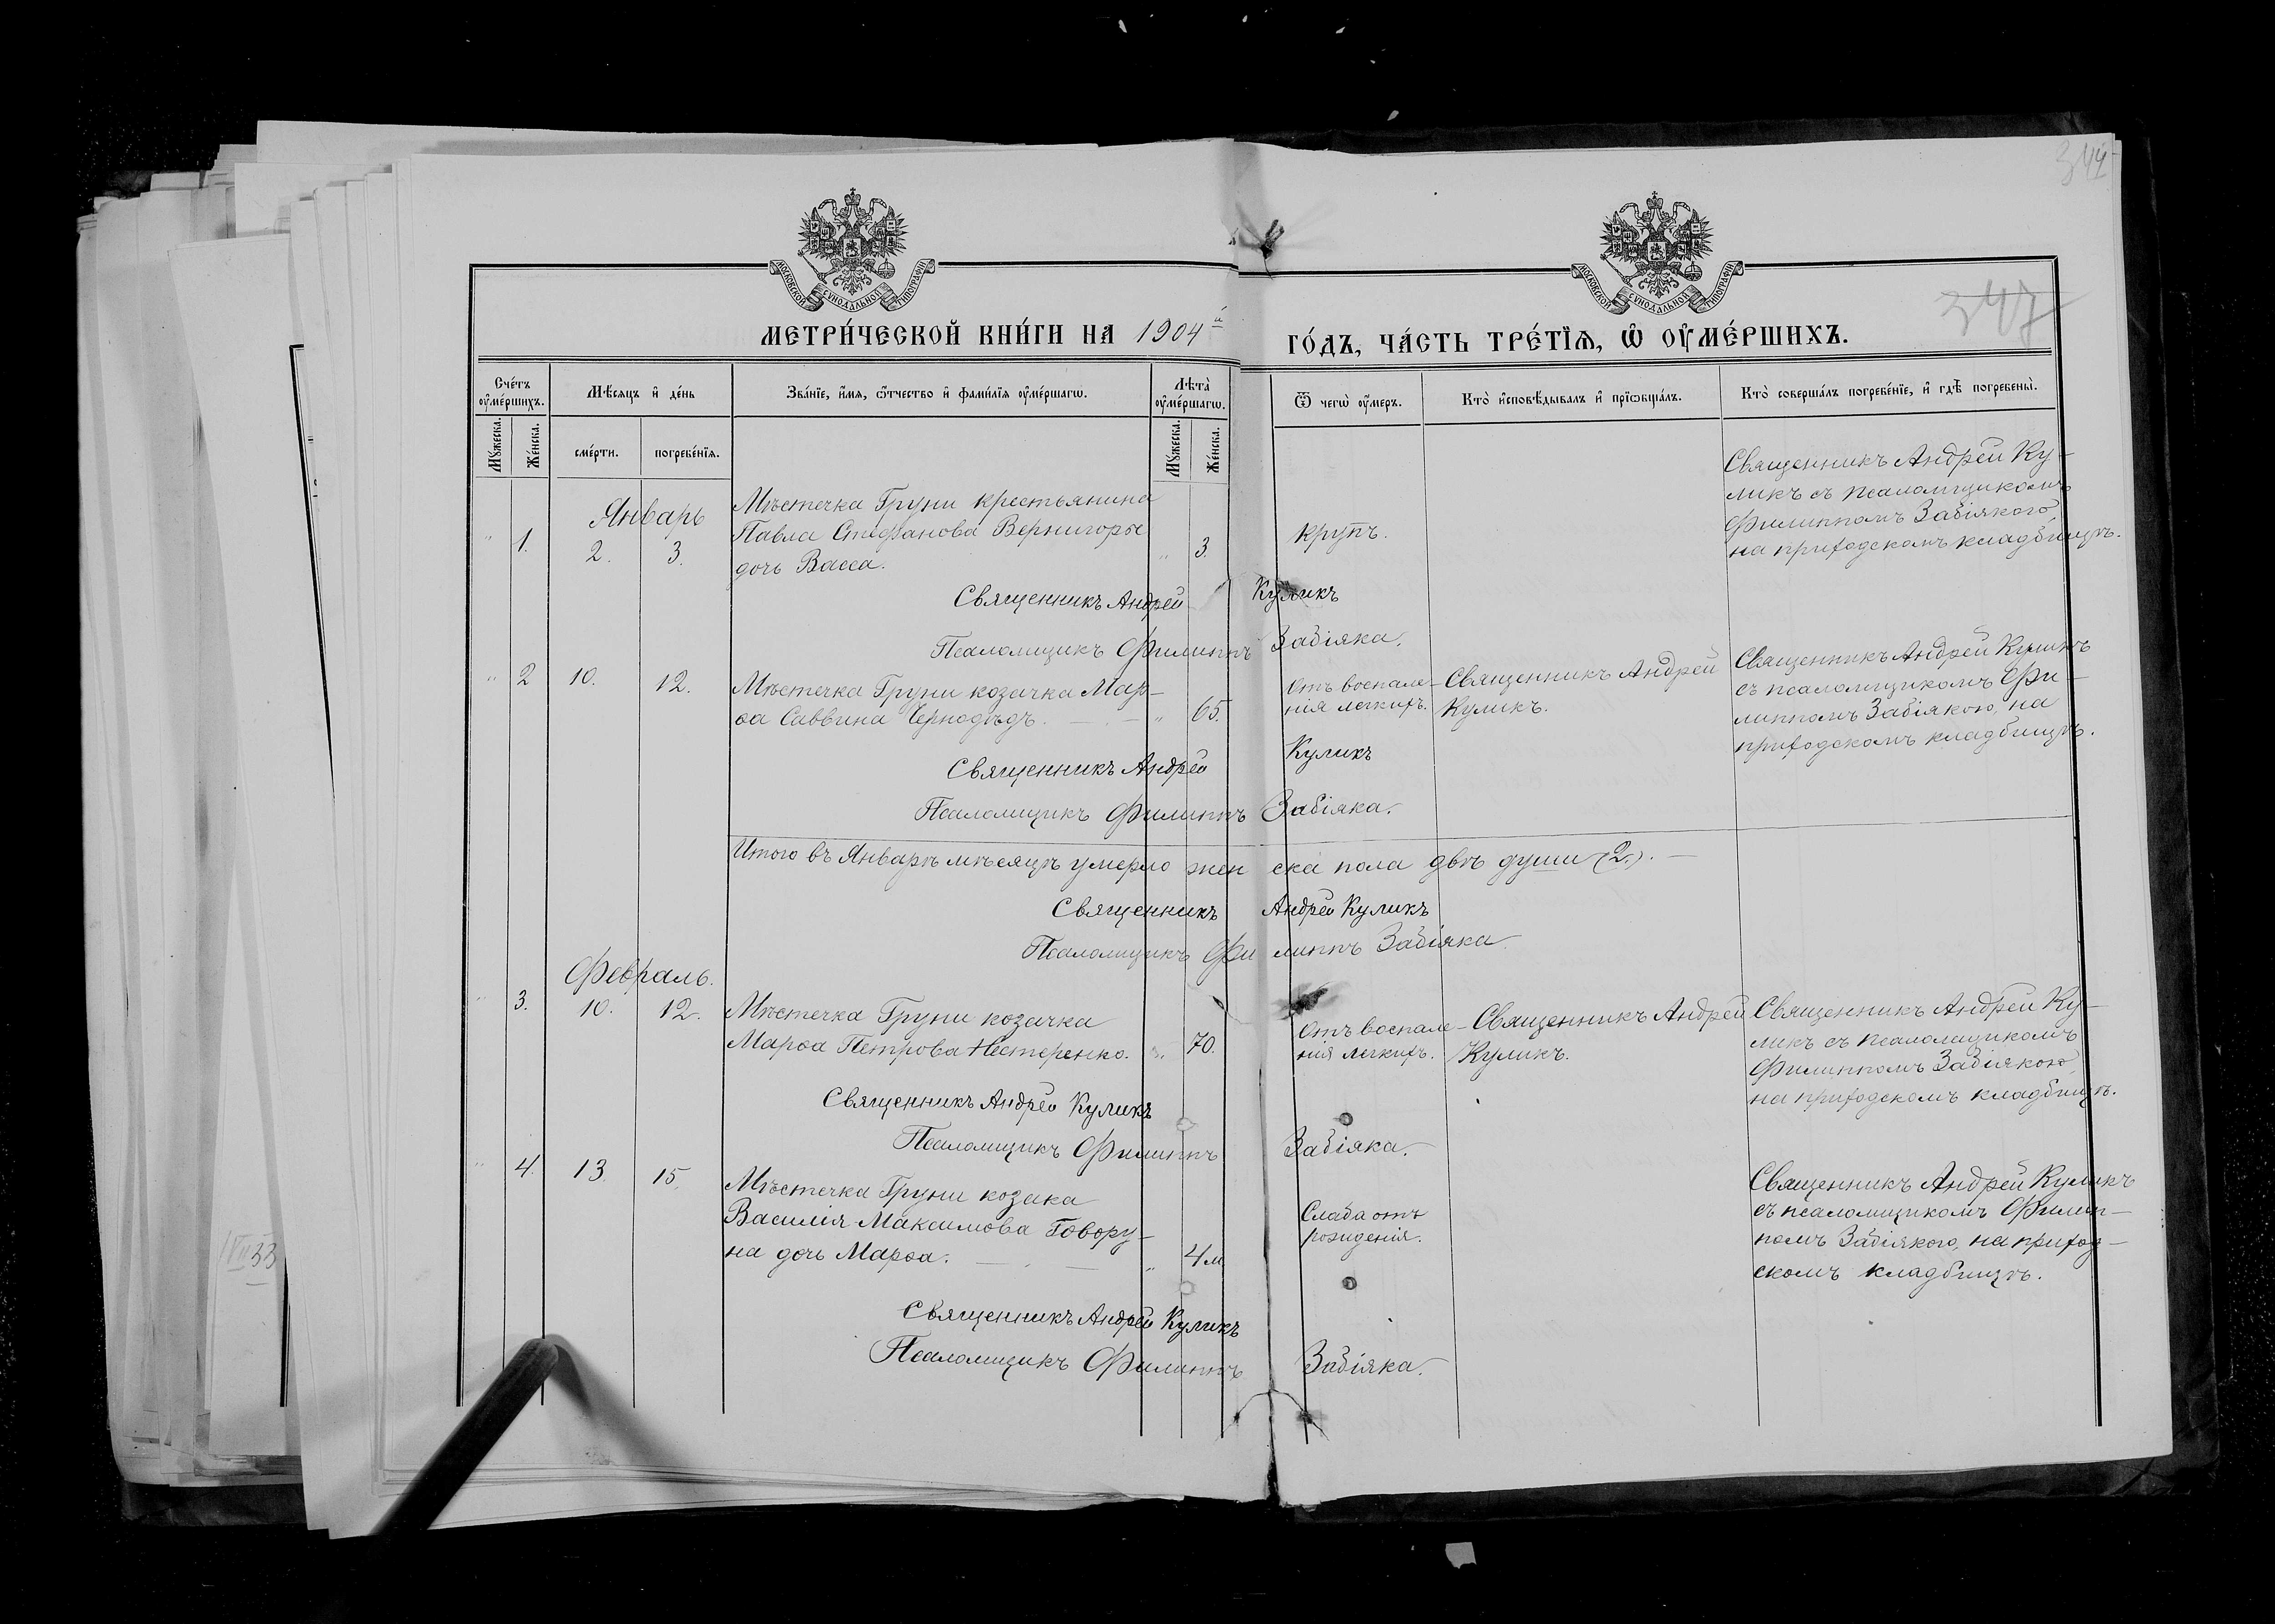 344
347
МОСКОВСКОЙ СѴНОДАЛЬНОЙ ТИПОГРАФІИ
МОСКОВСКОЙ СѴНОДАЛЬНОЙ ТИПОГРАФІИ
МЕТРИ́ЧЕСКОЙ КНИ́ГИ НА 1904й
ГО́ДЪ, ЧА́СТЬ ТРЕ́ТЇѦ, Ѡ҆ ОУ҆МЕ́РШИХЪ.
Сче́тъ оу҆ме́ршихъ.
Мѣ́сяцъ и҆ де́нь
Зва́нїе, и҆́мя, ѻ҆́тчество и҆ фами́лїя оу҆ме́ршагѡ.
Лѣ́та оу҆ме́ршагѡ.
Ѿ чегѡ̀ оу҆́меръ.
Кто̀ и҆сповѣ́дывалъ и҆ прїѡбща́лъ.
Кто̀ соверша́лъ погребе́нїе, и҆ гдѣ̀ погребены̀.
Мꙋ́жеска.
Же́нска.
сме́рти.
погребе́нїя.
Мꙋ́жеска.
Же́нска.
Январь
" 1. 2. 3.
Мѣстечка Груни крестьянина
Павла Стефанова Вернигоры
дочь Васса.
" 3.
крупъ.
Священникъ Андрей Ку-
ликъ съ псаломщикомъ
Филиппомъ Забіякою,
на приходскомъ кладбищѣ.
Священникъ Андрей Куликъ
Псаломщикъ Филиппъ Забіяка.
" 2 10. 12.
Мѣстечка Груни козачка Мар-
ѳа Саввина Чернодѣдъ. — " 65.
Отъ воспале-
нія легкихъ.
Священникъ Андрей
Куликъ.
Священникъ Андрей Куликъ
съ псаломщикомъ Фи-
липпомъ Забіякою, на
приходскомъ кладбищѣ.
Священникъ Андрей Куликъ
Псаломщикъ Филиппъ Забіяка.
Итого въ Январѣ мѣсяцѣ умерло женска пола двѣ души (2). —
Священникъ Андрей Куликъ
Псаломщикъ Филиппъ Забіяка
Февраль.
" 3. 10. 12.
Мѣстечка Груни козачка
Марѳа Петрова Нестеренко. " 70.
Отъ воспале-
нія легкихъ.
Священникъ Андрей
Куликъ.
Священникъ Андрей Ку-
ликъ съ псаломщикомъ
Филиппомъ Забіякою,
на приходскомъ кладбищѣ.
Священникъ Андрей Куликъ
Псаломщикъ Филиппъ Забіяка.
" 4. 13. 15.
Мѣстечка Груни козака
Василія Максимова Говору-
на дочь Марѳа. — " 4 м
Слаба отъ
рожденія.
Священникъ Андрей Куликъ
съ псаломщикомъ Филип-
помъ Забіякою, на приход-
скомъ кладбищѣ.
Священникъ Андрей Куликъ
Псаломщикъ Филиппъ Забіяка.